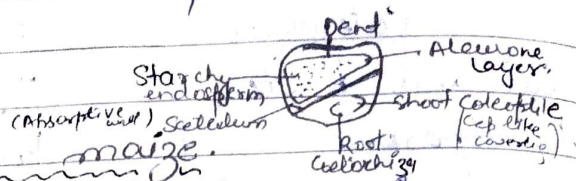 Dent
Aleurone
Layer.
Starchy
endosperm
(Absorptive
Scutellum
Shoot Coleoptile
(Cap like
covering)
maize.
Root
Coeliorhiza